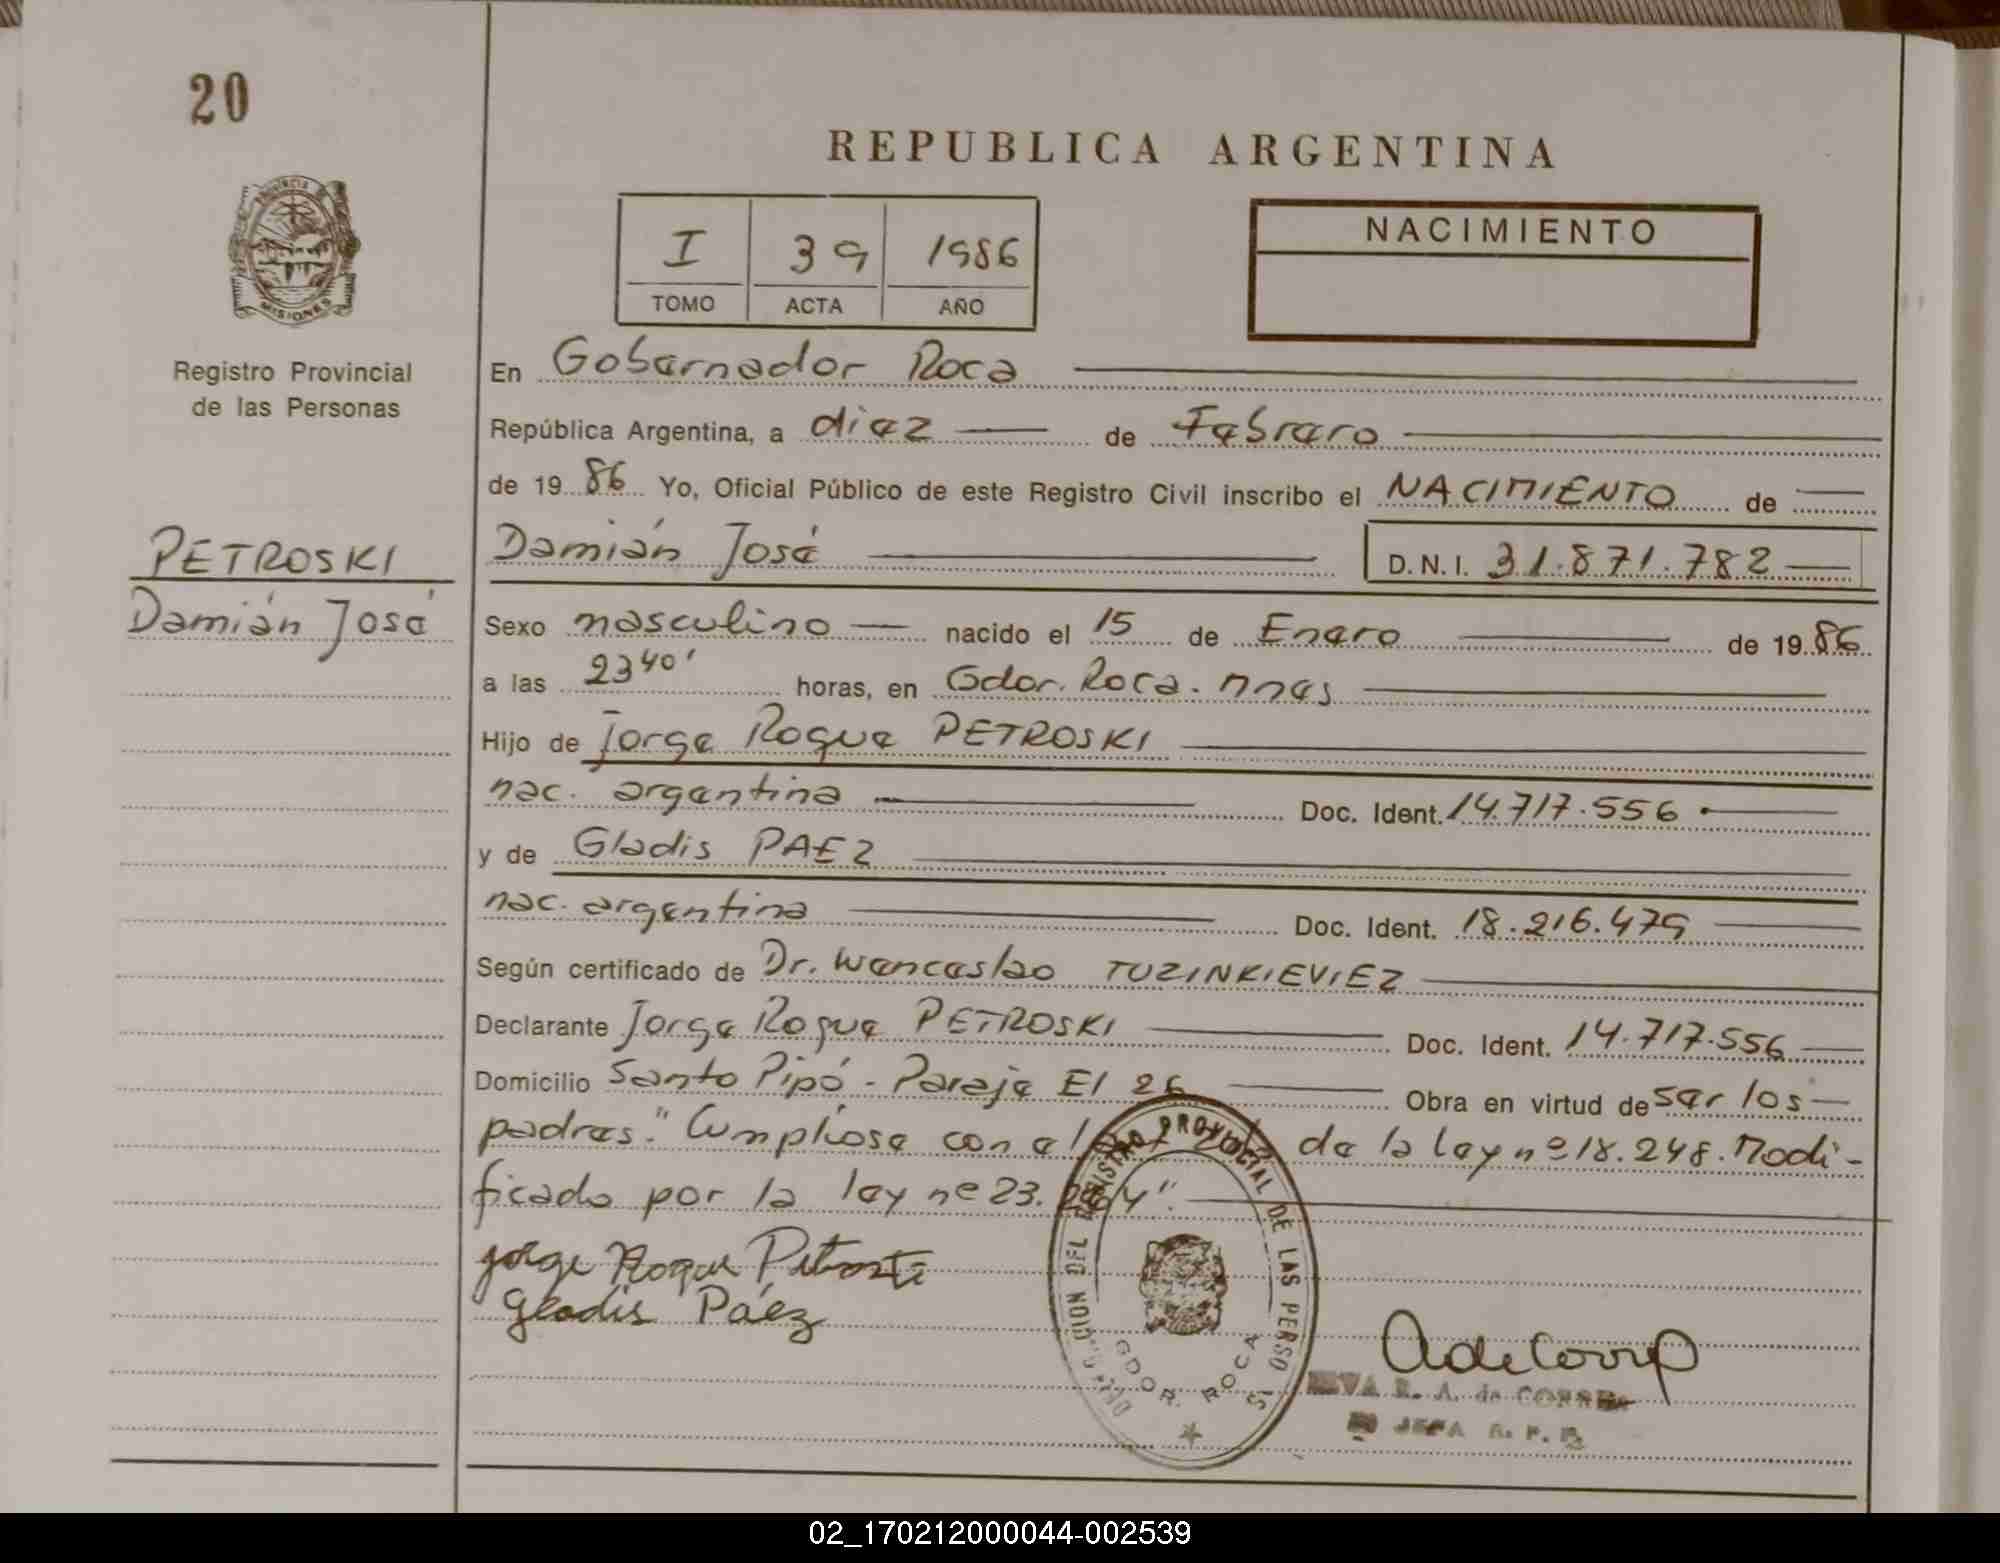 20
REPUBLICA ARGENTINA
PROVINCIA DE
MISIONES
Registro Provincial
de las Personas
I 39 1986
TOMO ACTA AÑO
NACIMIENTO
En Gobernador Roca
República Argentina, a diez de Febrero
de 1986 Yo, Oficial Público de este Registro Civil inscribo el NACIMIENTO de
PETROSKI
Damián José
Damián José D.N.I. 31.871.782
Sexo masculino nacido el 15 de Enero de 1986
a las 23 40' horas, en Gdor. Roca. Mnes
Hijo de Jorge Roque PETROSKI
nac. argentina Doc. Ident. 14.717.556
y de Gladis PAEZ
nac. argentina Doc. Ident. 18.216.479
Según certificado de Dr. Wenceslao TUZINKIEVIEZ
Declarante Jorge Roque PETROSKI Doc. Ident. 14.717.556
Domicilio Santo Pipó - Paraje El 26 Obra en virtud de ser los
padres. "Cumpliose con el de la ley nº 18.248. Modi-
ficado por la ley nº 23.264".
Jorge Roque Petroski
Gladis Páez
REGISTRO PROVINCIAL DE LAS PERSO
DEL
GDOR. ROCA
A de Correa
R. A. de CORREA
JEFA R. P. P.
02_170212000044-002539